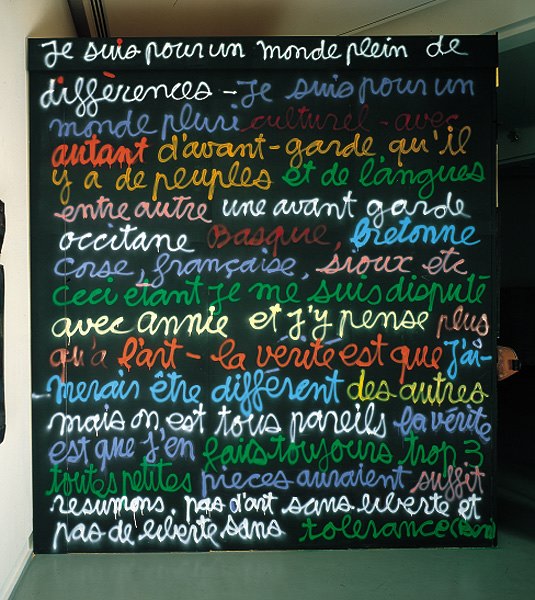 Je suis pour un monde plein de
différences - Je suis pour un
monde pluri culturel - avec
autant d'avant-garde qu'il
y a de peuples et de langues
entre autre une avant garde
occitane Basque, bretonne
corse, française, sioux etc
ceci étant je me suis disputé
avec annie et j'y pense plus
qu'a l'art - la vérité est que j'ai-
merais être différent des autres
mais on est tous pareils la vérité
est que j'en fais toujours trop 3
toutes petites pieces auraient suffit
resumons, pas d'art sans liberte et
pas de liberte sans tolerance (Ben)